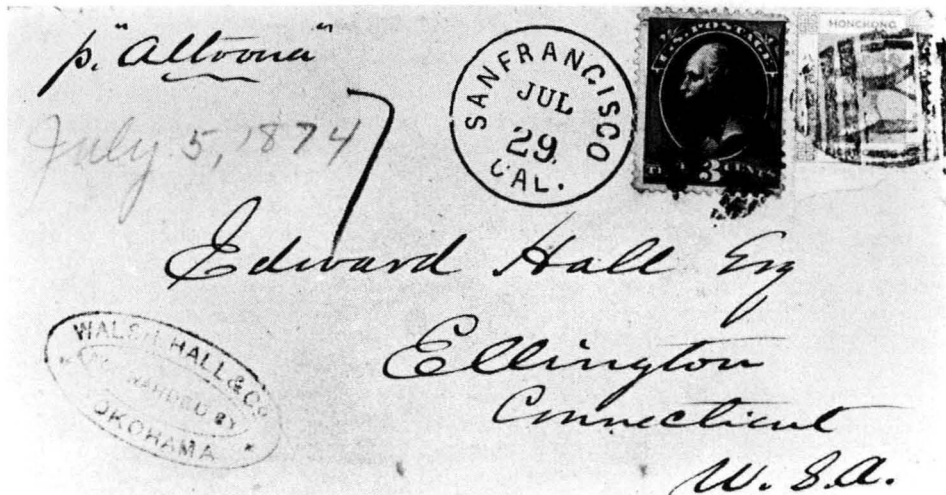 p. "Altoona"
July 5, 1874
7
SAN FRANCISCO
JUL
29.
CAL.
U.S. POSTAGE
3 CENTS
HONGKONG
Edward Hall Esq
Ellington
Connecticut
U.S.A.
WALSH, HALL & Co
FORWARDED BY
YOKOHAMA